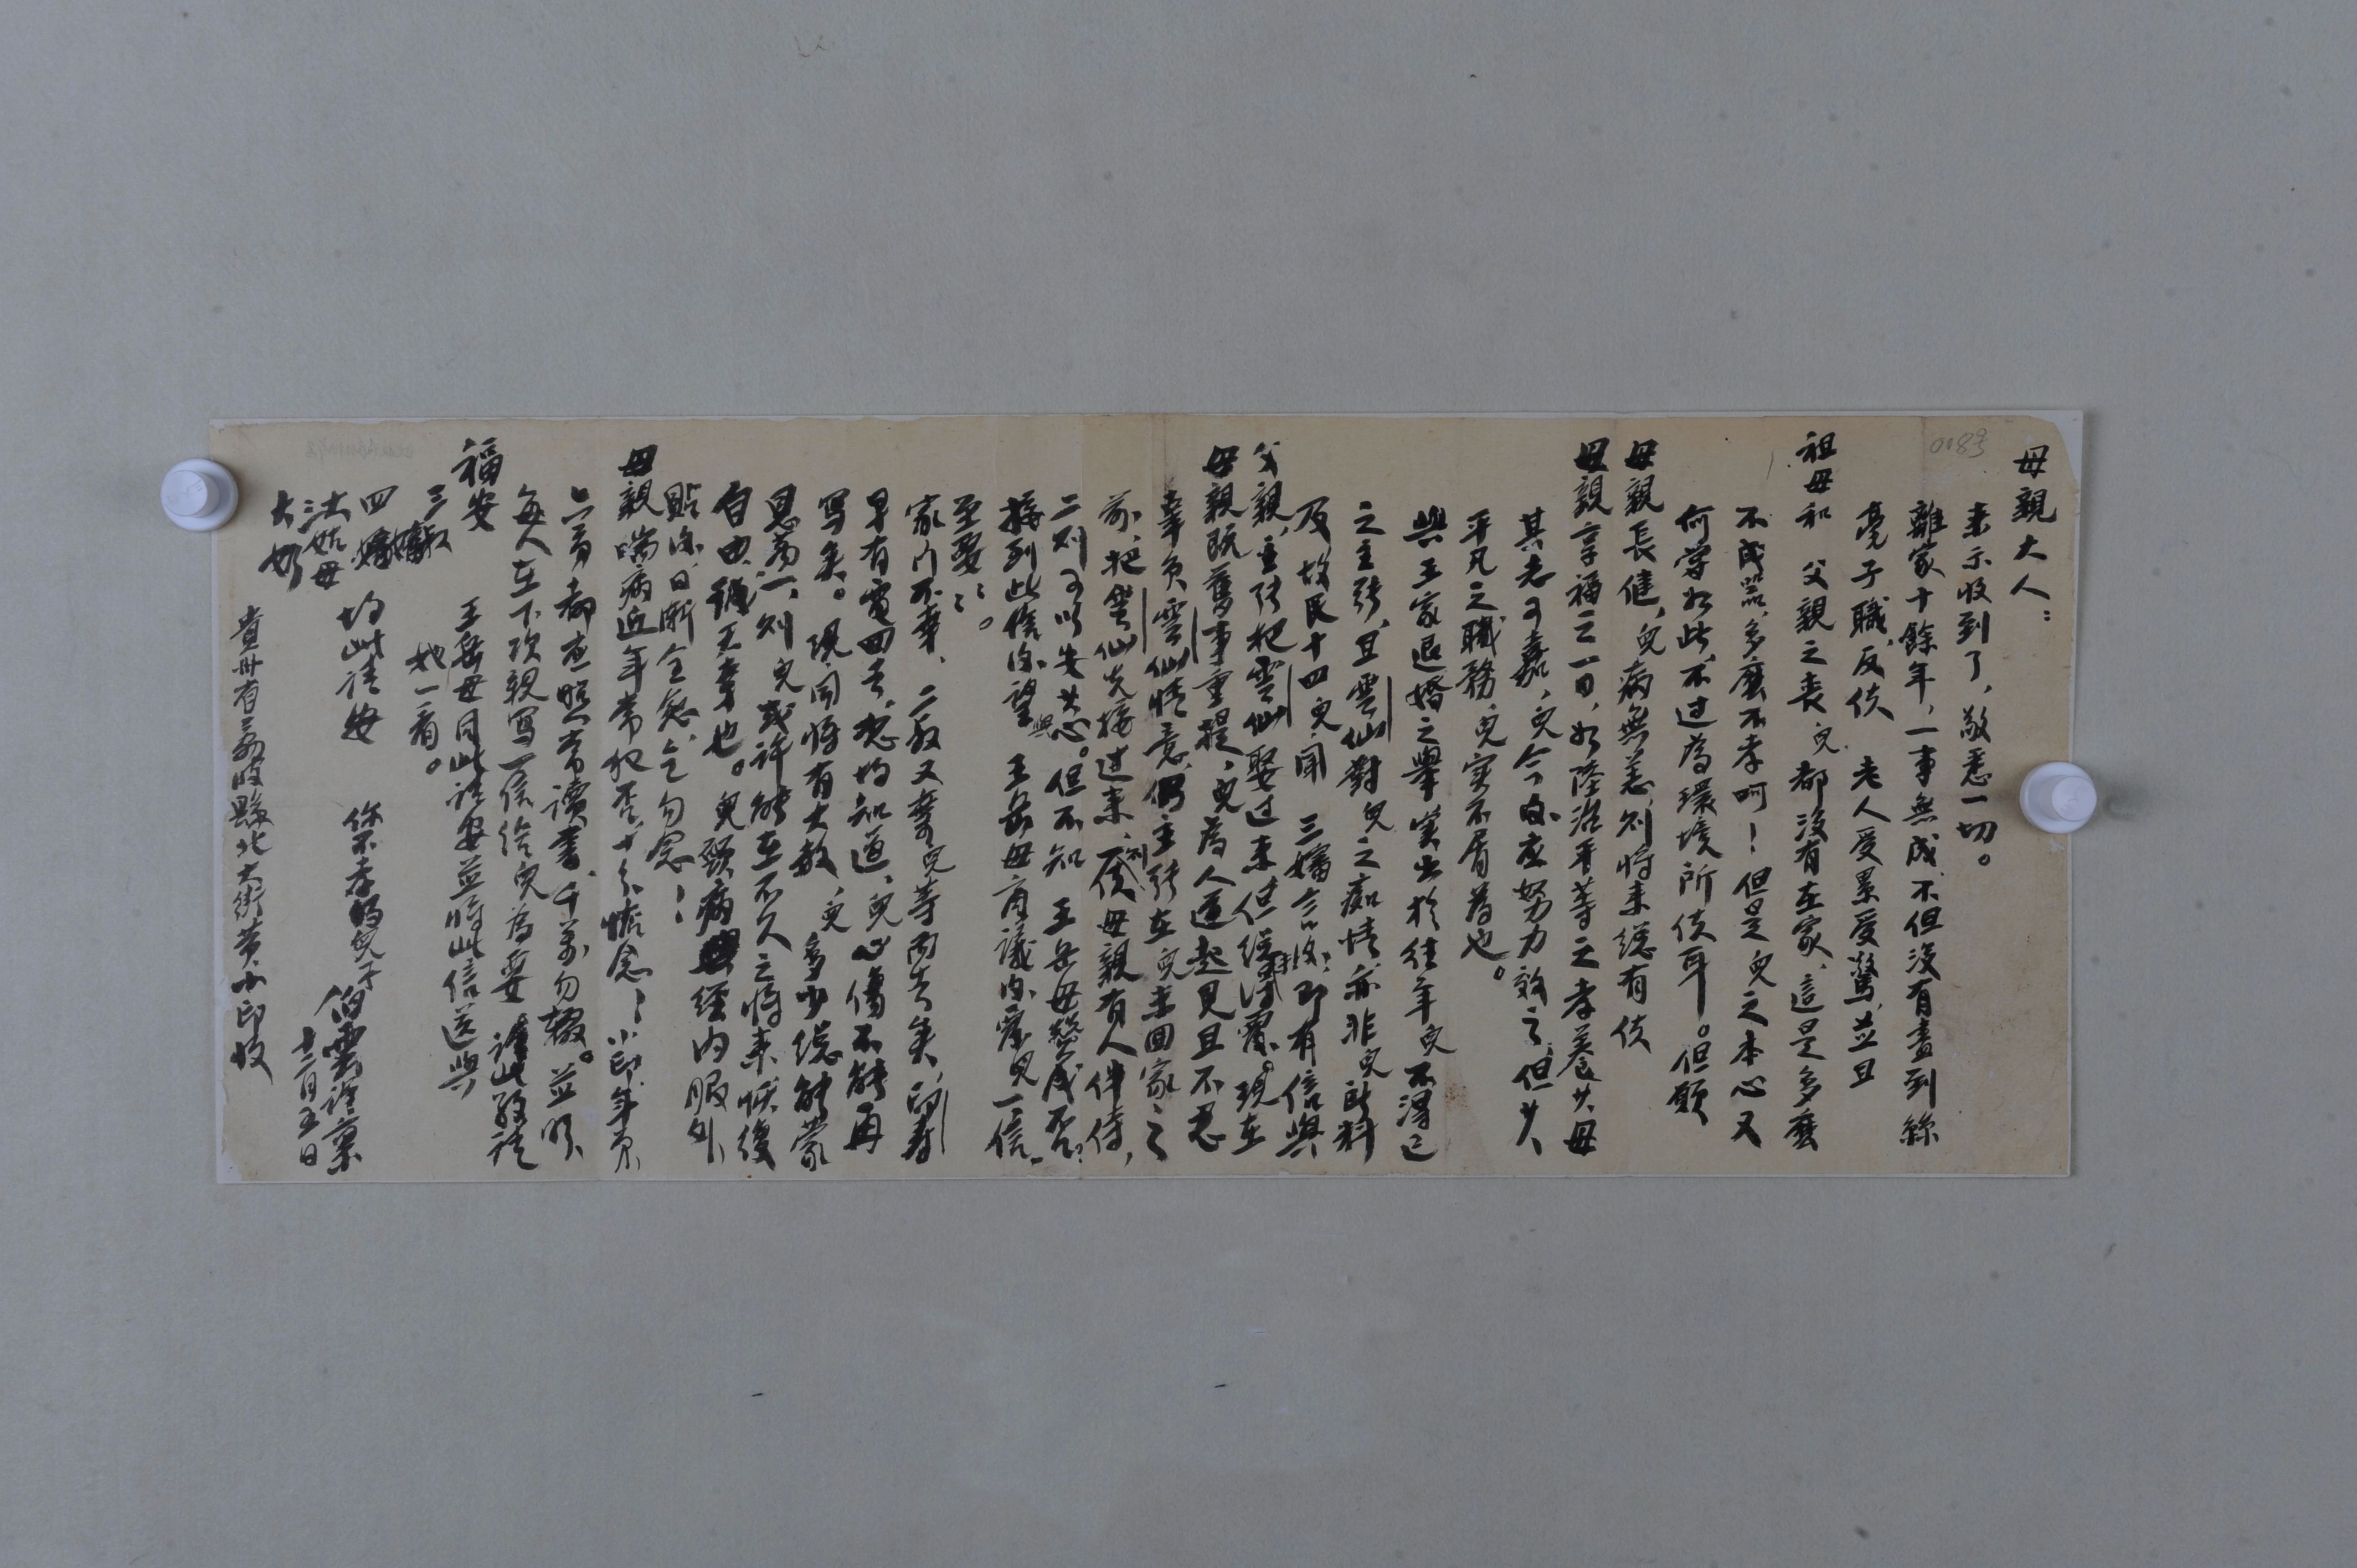 母親大人：
来示收到了，敬悉一切。
離家十餘年，一事無成，不但沒有盡到絲
毫子職，反使　老人受累受驚，並且
祖母和　父親之喪，兒都沒有在家，這是多麼
不成器，多麼不孝呵！但是兒之本心又
何嘗如此，不过為環境所使耳。但願
母親長健，兒病無恙，則將来總有使
母親享福之一日，如陸治平等之孝養其母
其志可嘉，兒今后应努力效之，但其
平凡之職務，兒実不屑為也。
與王家退婚之舉实出於往年兒不得已
之主張，且雲仙對兒之痴情亦非兒所料
及，故民十四兒聞　三嬸言後，即有信與
父親，主張把雲仙娶过来，但經浮霧。現在
母親既舊事重提，兒為人道起見且不忍
辜負雲仙情意，仍主張在兒未回家之
前，把雲仙先接过来，一則使母親有人伴侍，
二則可以安其心。但不知　王岳母贊成否？
接到此信後望與　王岳母商議後覆兒一信，
至要：：。
家门不幸，二叔又棄兒等而去矣，印書
早有電回去，想均知道，兒心傷不能再
寫矣。現聞將有大赦，兒多少總能蒙
恩，万一則兒或許能在不久之將来恢復
自由，誠天幸也。兒頸病經内服外
貼後，日漸全愈，乞勿念！
母親喘病近年常犯否，十分惦念！小印年来
与育都应照常讀書，千萬勿輟。並順
每人在下次親写一信給兒為要　謹此敬請
福安
王岳母同此請安並將此信送與
她一看。
三叔
四嬸
三姑母
大嫂　均此請安
你不孝的兒子　伯雲謹稟
十二月五日
貴州有荔波縣北大街黄小印收
0083